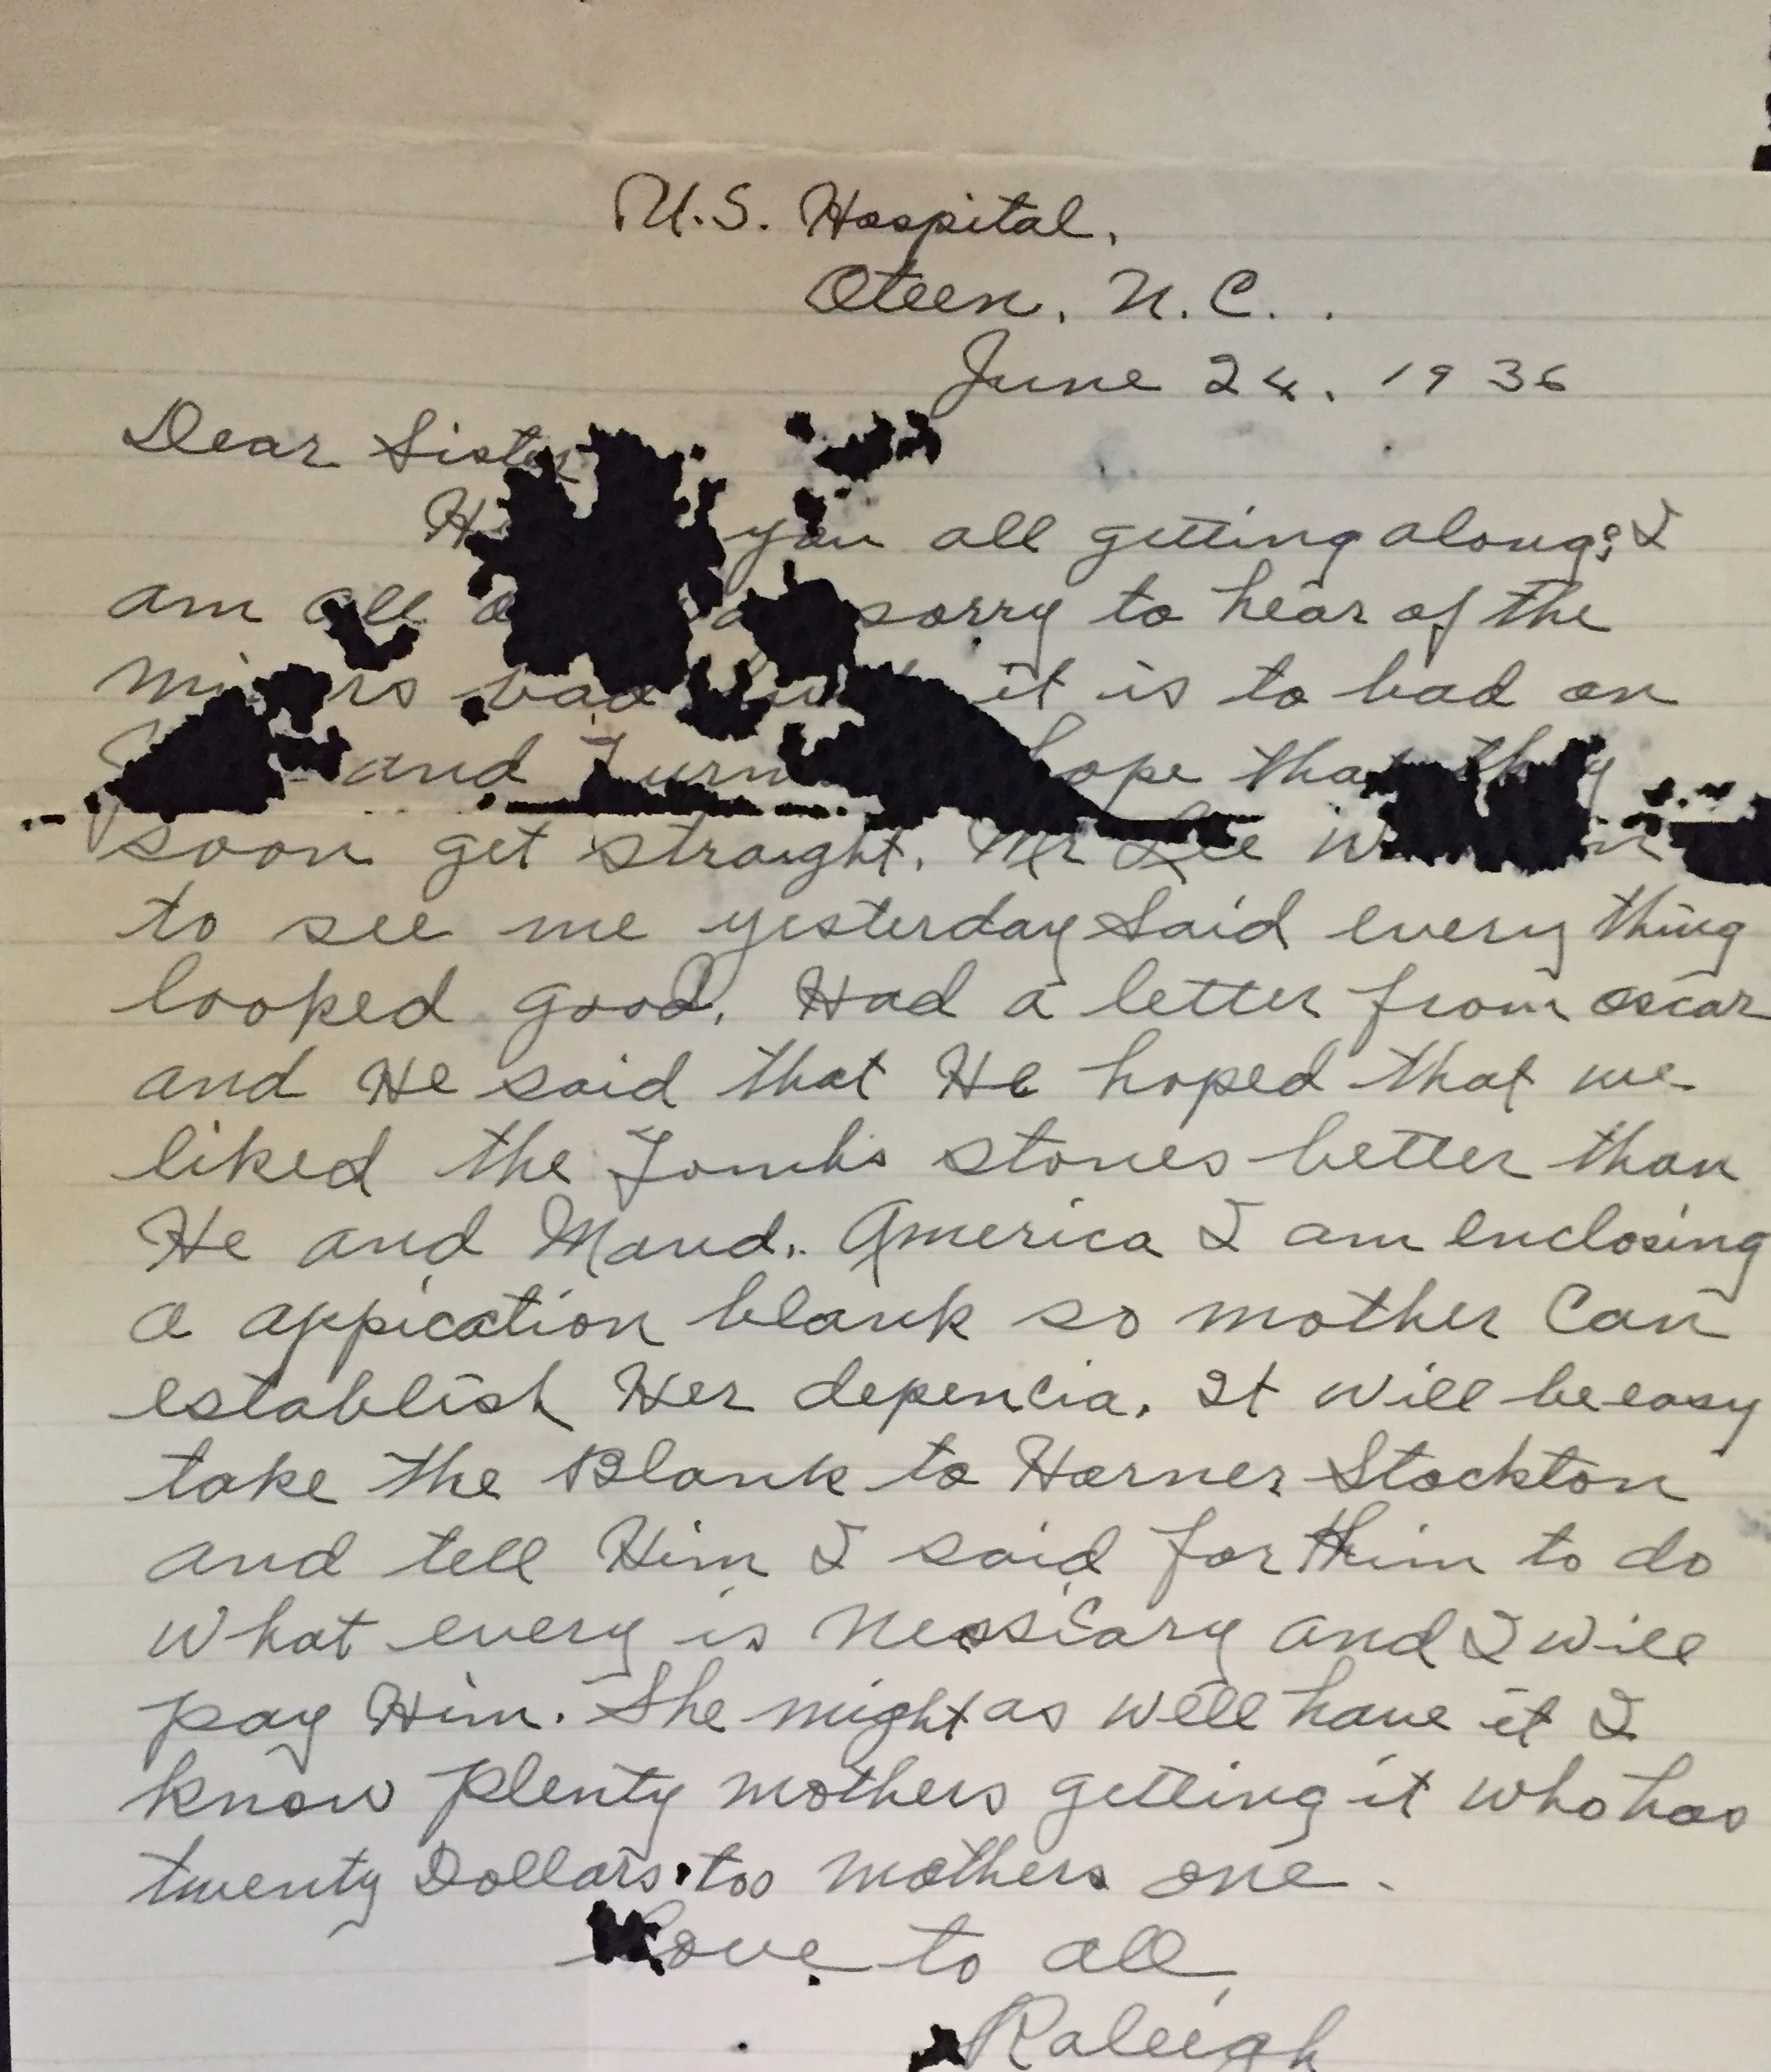 U.S. Hospital,
Oteen, N.C..
June 24, 1936
Dear Sister
you all getting along; I
am all sorry to hear of the
bad it is to bad on
and hope that they
soon get straight. Mr Lee
to see me yesterday said every thing
looked good. Had a letter from oscar
and He said that He hoped that we
liked the Tombs stones better than
He and Maud.. America I am enclosing
a appication blank so mother Can
establish Her depencia. It will be easy
take the Blank to Horner Stockton
and tell Him I said for Him to do
what every is Nessicary and I will
pay Him. She might as well have it I
know plenty mothers getting it who has
twenty Dollars too mothers one.
Love to all,
Raleigh